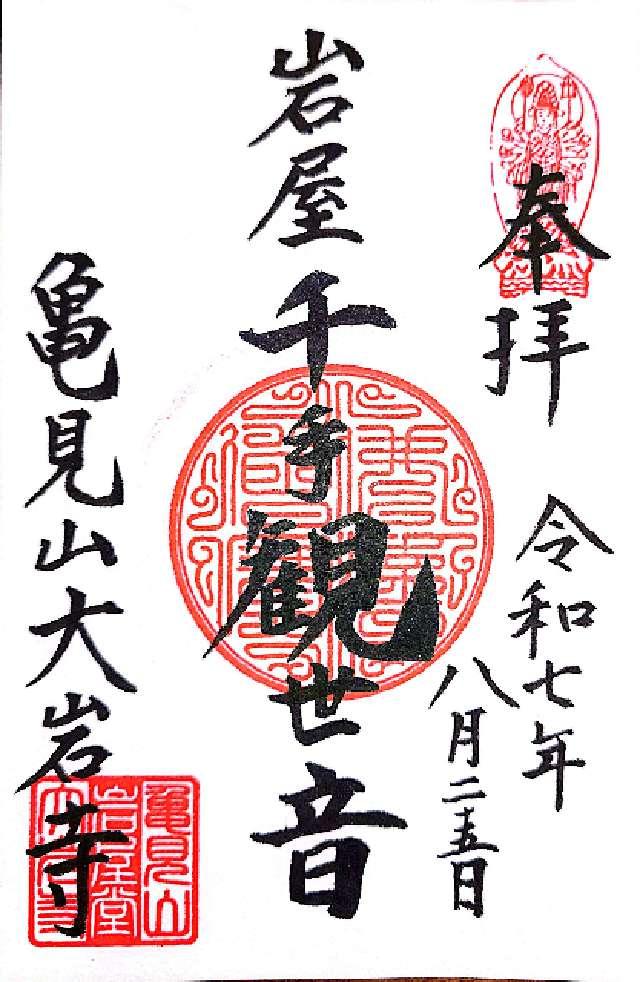 奉拝
令和七年
八月二十五日
岩屋千手観世音
亀見山大岩寺
亀見山
岩屋堂
大岩寺